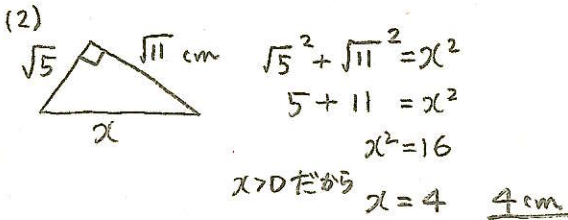 (2)
√5 √11 cm
x
√5² + √11² = x²
5 + 11 = x²
x² = 16
x>0 だから x = 4 4cm